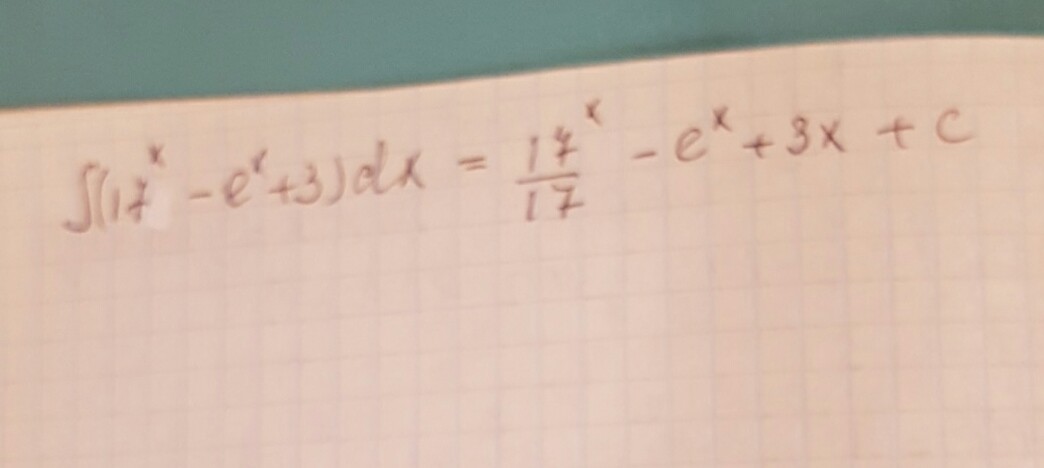 ∫(17^x - e^x + 3)dx = 17^x/17 - e^x + 3x + c